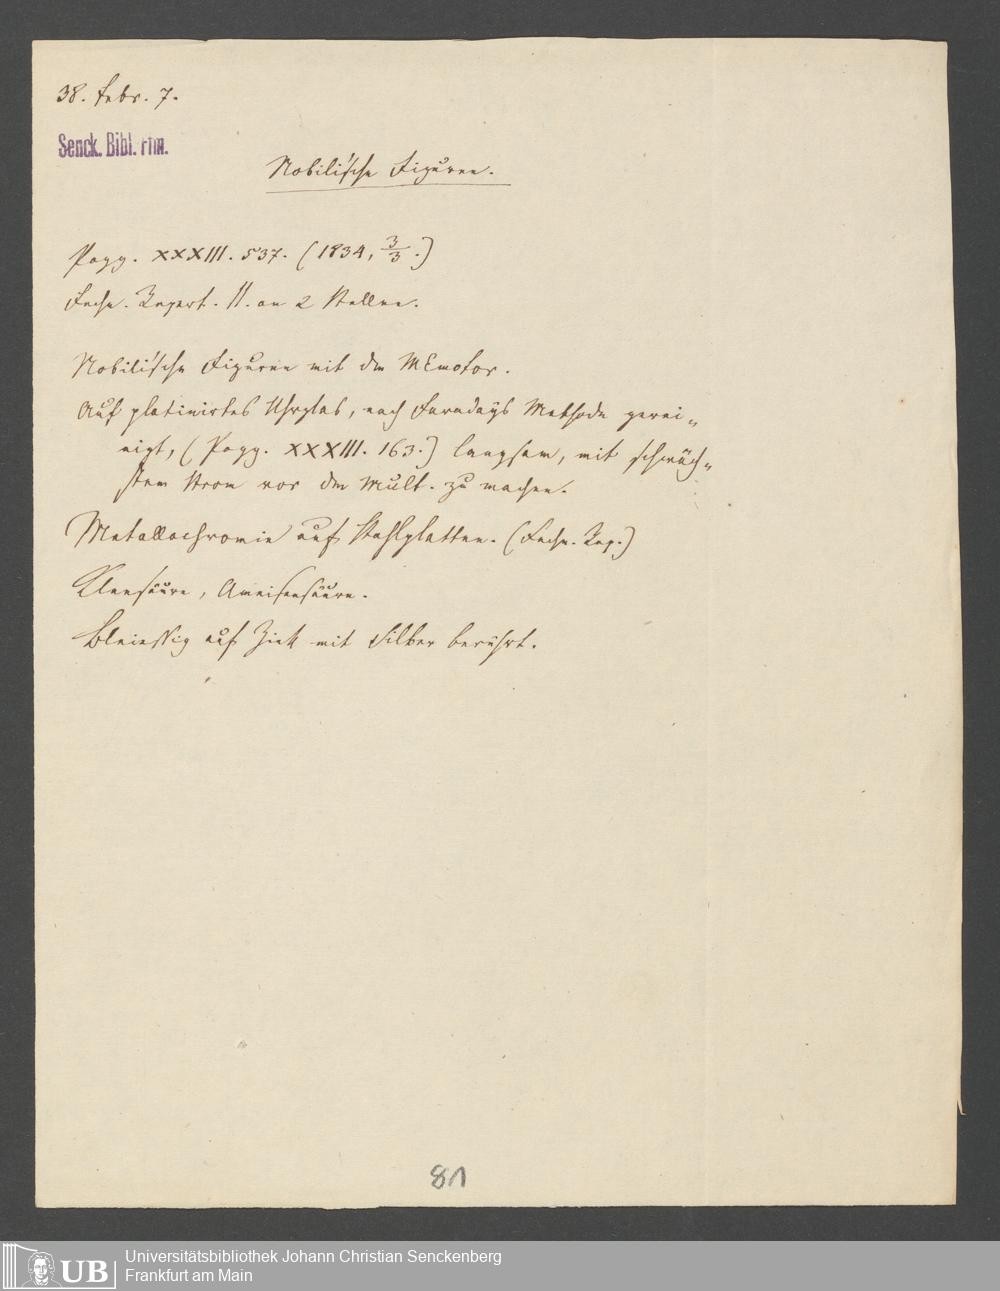 38. Febr. 7.
Senck. Bibl. Ffm.
Nobili'sche Figuren.
Pogg. XXXIII. 537. (1834, 3/3.)
Fechn. Repert. II. an 2 Stellen.
Nobili'sche Figuren mit dem MEmotor.
Auf platinirtes Uhrglas, nach Faradays Methode gerei„
nigt, (Pogg. XXXIII. 163.) langsam, mit schwäch„
stem Strom vor dem Mult. zu machen.
Metallochromie auf Stahlplatten. (Fechn. Rep.)
Kleesäure, Ameisensäure.
Bleiessig auf Zink mit Silber berührt.
81
UB
Universitätsbibliothek Johann Christian Senckenberg
Frankfurt am Main